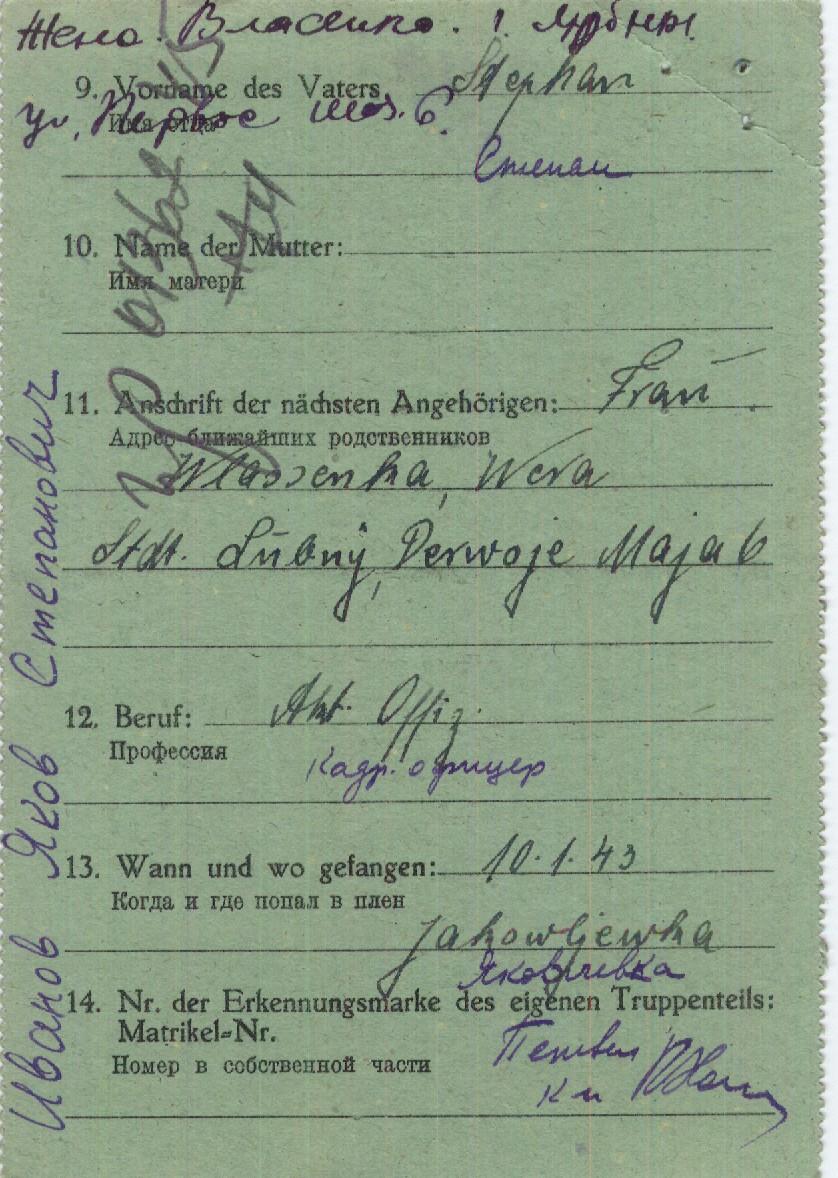 Жена. Власенко. г.
9. Vorname des Vaters Stephan
Имя отца
ул. Первое мая. 6.
Степан
10. Name der Mutter:
Имя матери
11. Anschrift der nächsten Angehörigen: Frau
Адрес ближайших родственников
Wlassenka, Wera
Stdt. Lubny, Perwoje Maja 6
12. Beruf: Akt. Offiz.
Профессия
Кадр. офицер
13. Wann und wo gefangen: 10.1.43
Когда и где попал в плен
Jakowljewka
Яковлевка
14. Nr. der Erkennungsmarke des eigenen Truppenteils:
Matrikel=Nr.
Номер в собственной части
Иванов Яков Степанович